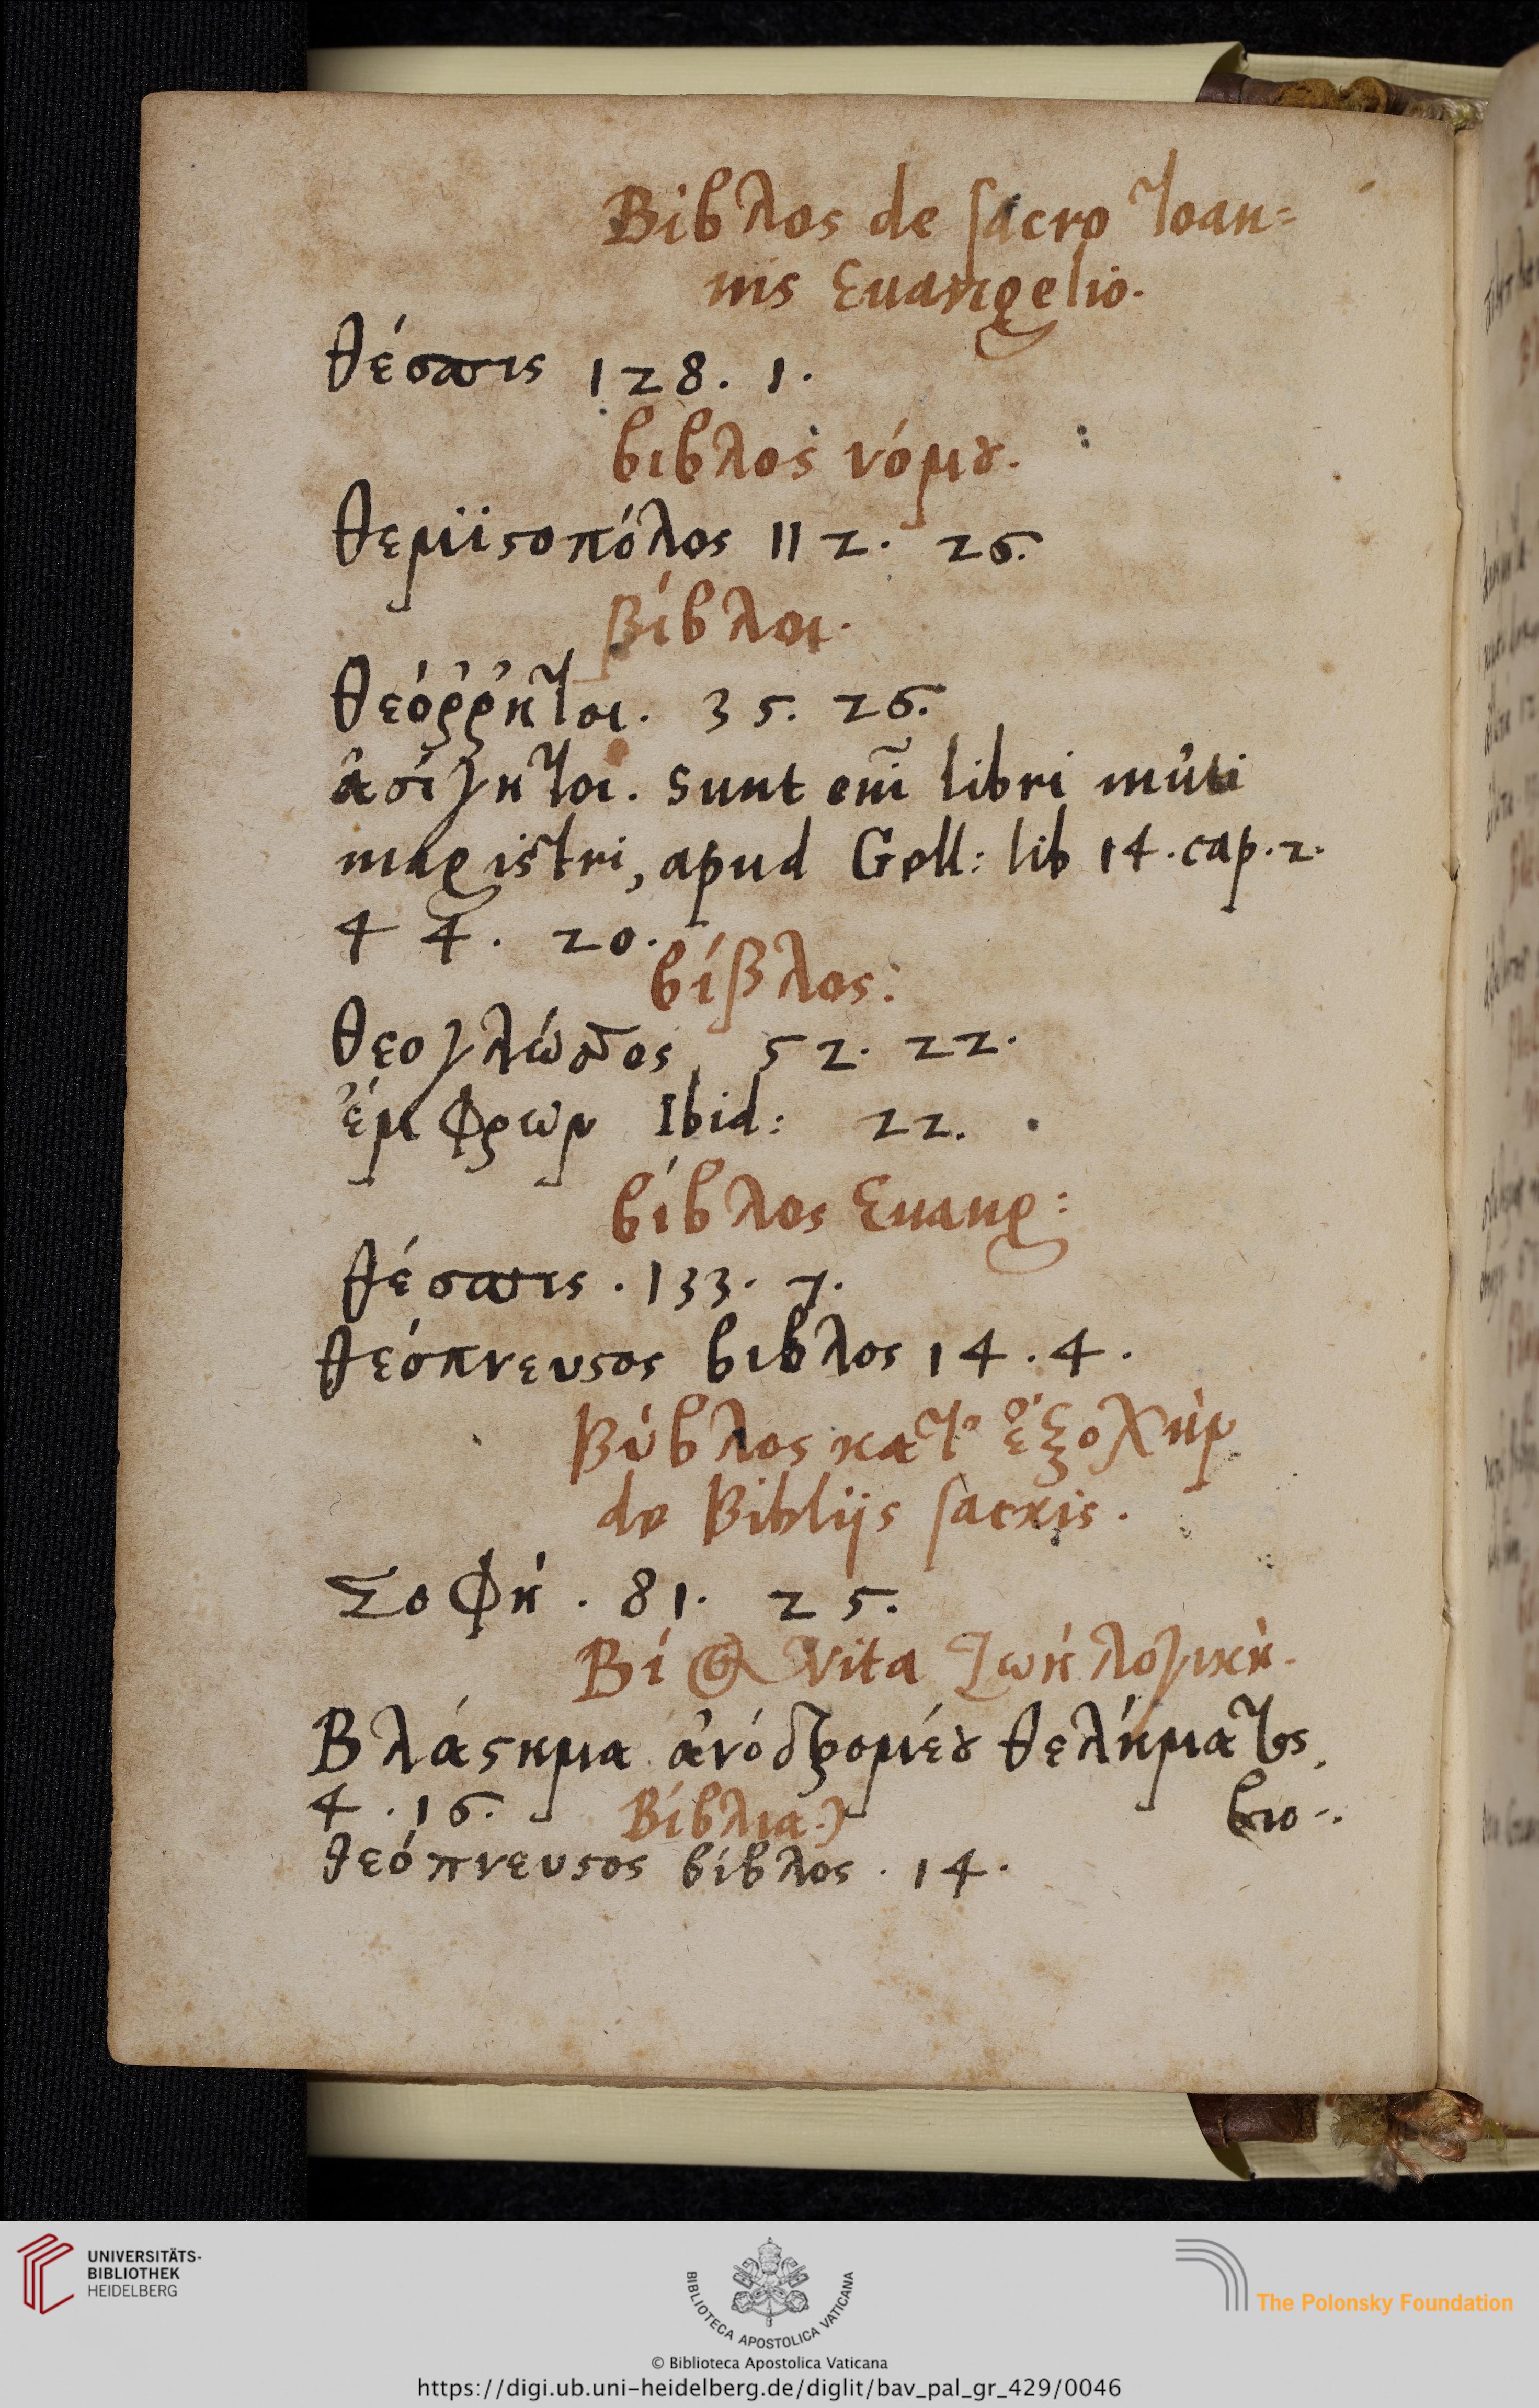 Βίβλος de sacro Ioan=
nis Euangelio.
θέσπις 128. 1.
βιβλος νόμου.
θεμιϊστοπόλος 112. 26.
Βίβλοι.
θεόῤῥητοι. 35. 26.
ἀσίγητοι. Sunt enĩ libri muti
magistri, apud Gell: lib 14. cap. 2.
44. 20.
βίβλος:
θεογλώσσος 52. 22.
ἔμφρων Ibid: 22.
βίβλος Euang:
θέσπις. 133. 7.
θεόπνευστος βιβλος 14. 4.
Βύβλος κατ' ἐξοχὴν
de Biblijs sacris.
Σοφή. 81. 25.
Βίος vita ζωή λογικὴ.
Βλάστημα θελήματος
4. 16. Βίβλια βιο-.
θεόπνευστος βίβλος. 14.
UNIVERSITÄTS-
BIBLIOTHEK
HEIDELBERG
BIBLIOTECA APOSTOLICA VATICANA
The Polonsky Foundation
© Biblioteca Apostolica Vaticana
https://digi.ub.uni-heidelberg.de/diglit/bav_pal_gr_429/0046